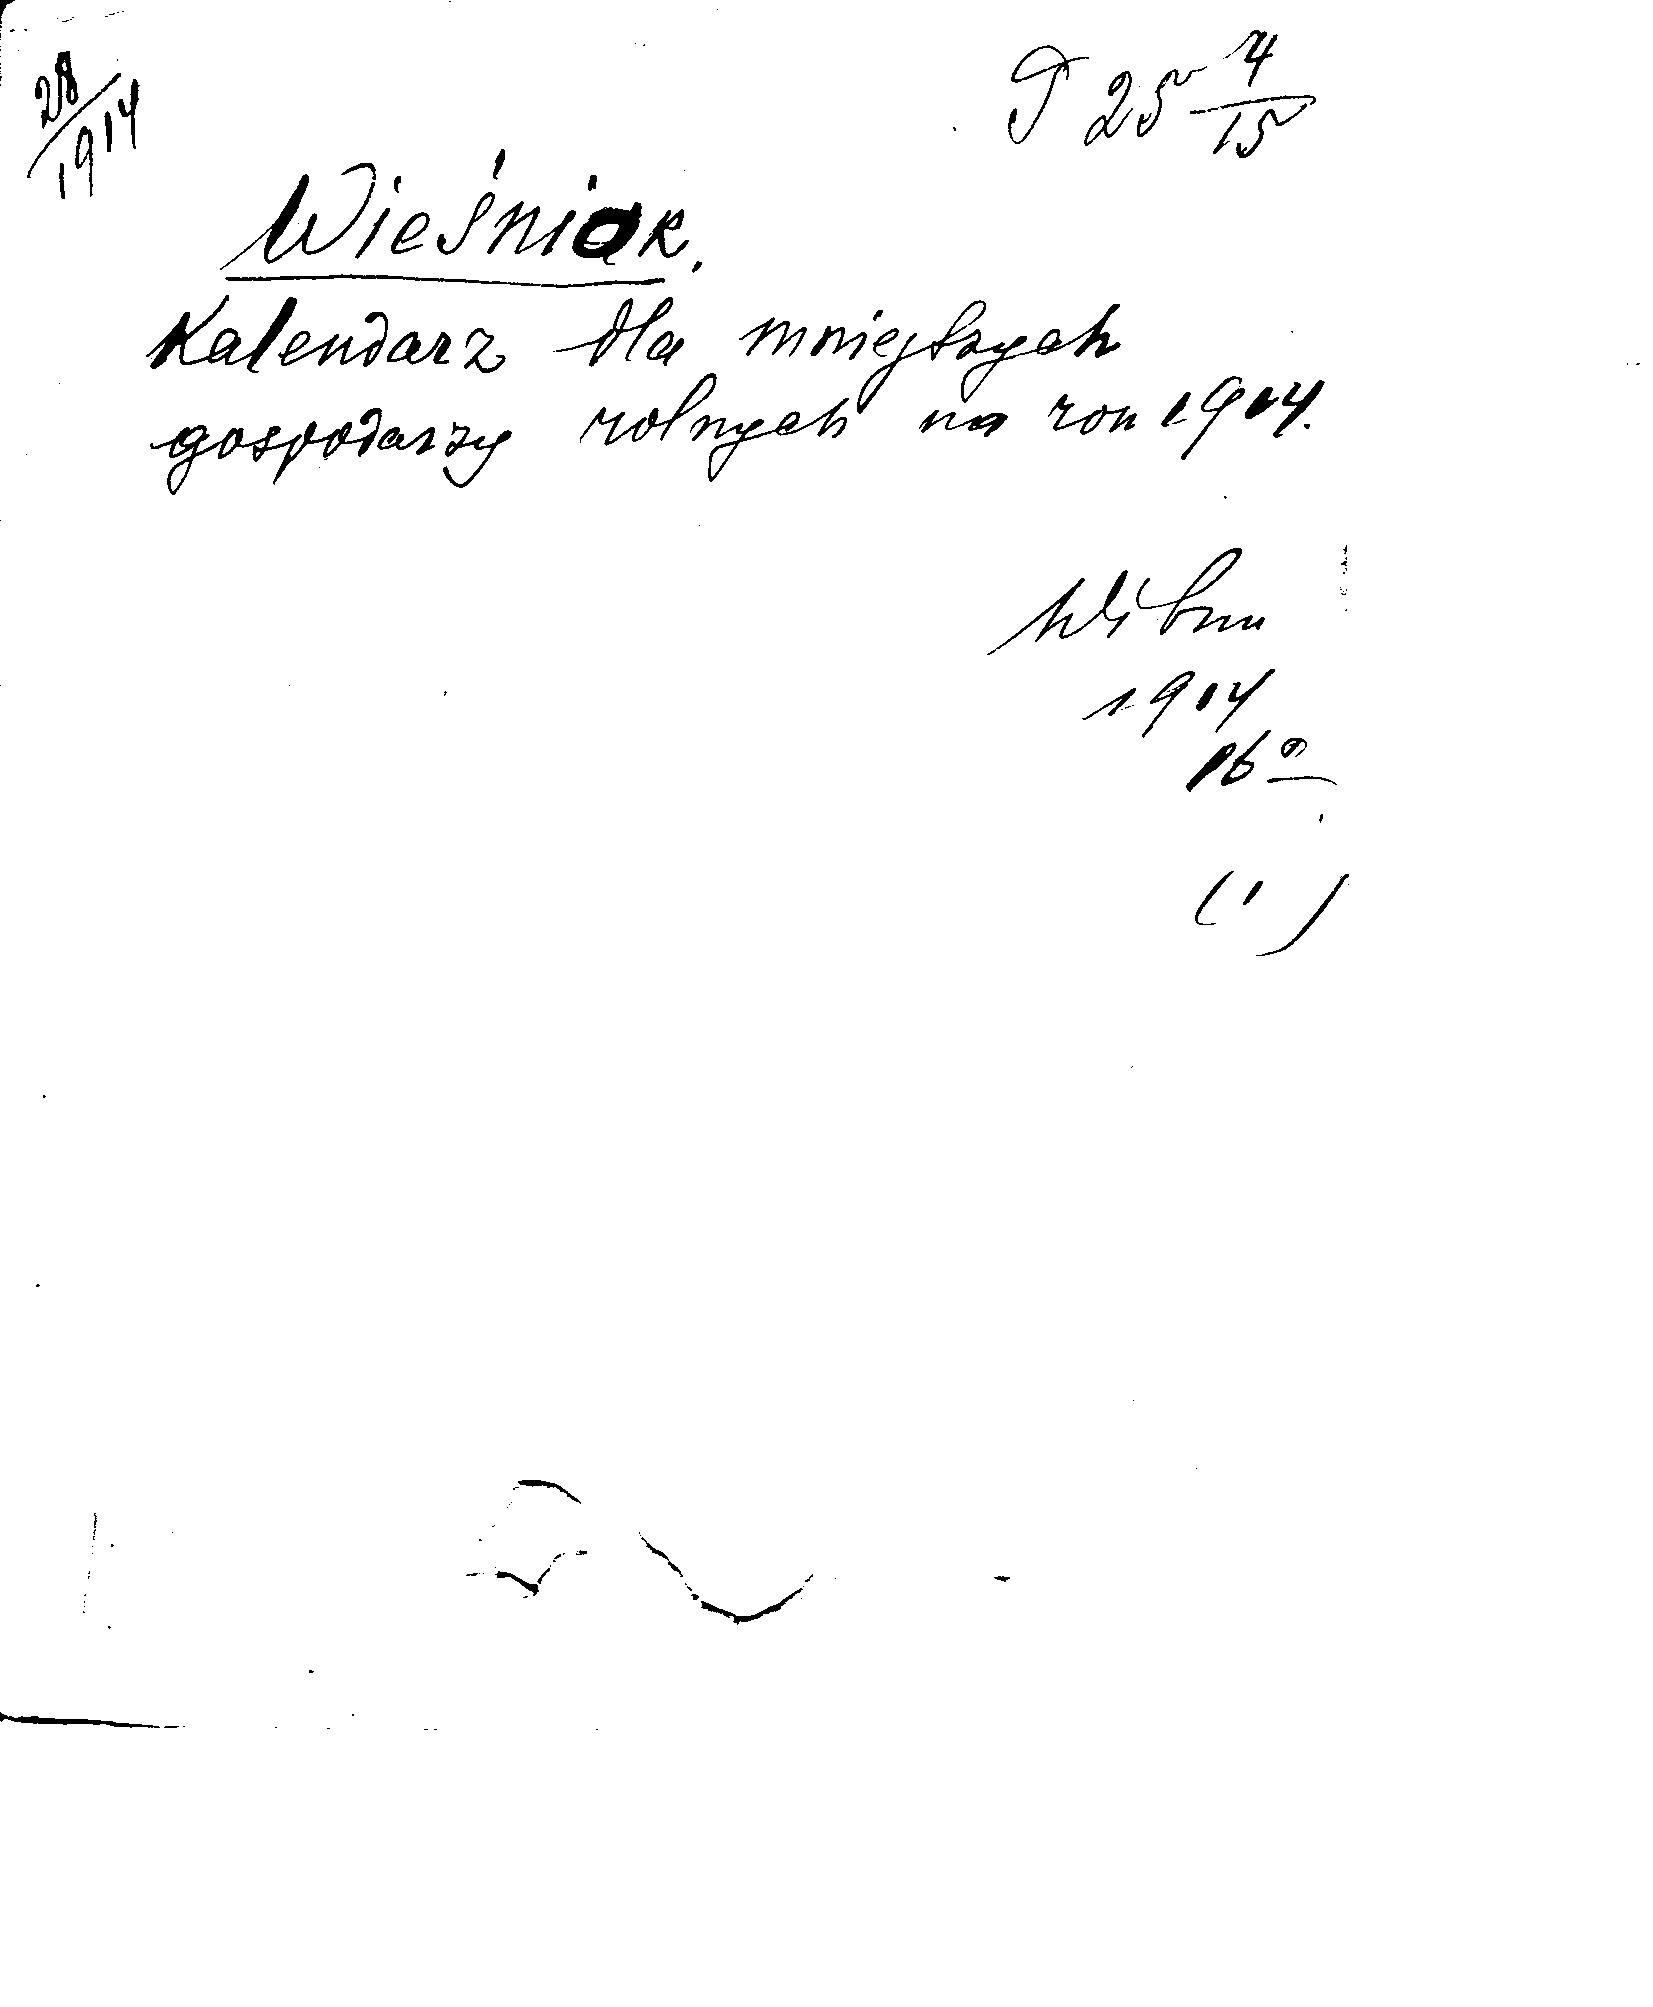 28/1914
T 25 4/15
Wieśniak.
Kalendarz dla mniejszych
gospodarzy rolnych na rok 1914.
Wilno
1914
16°
(1)